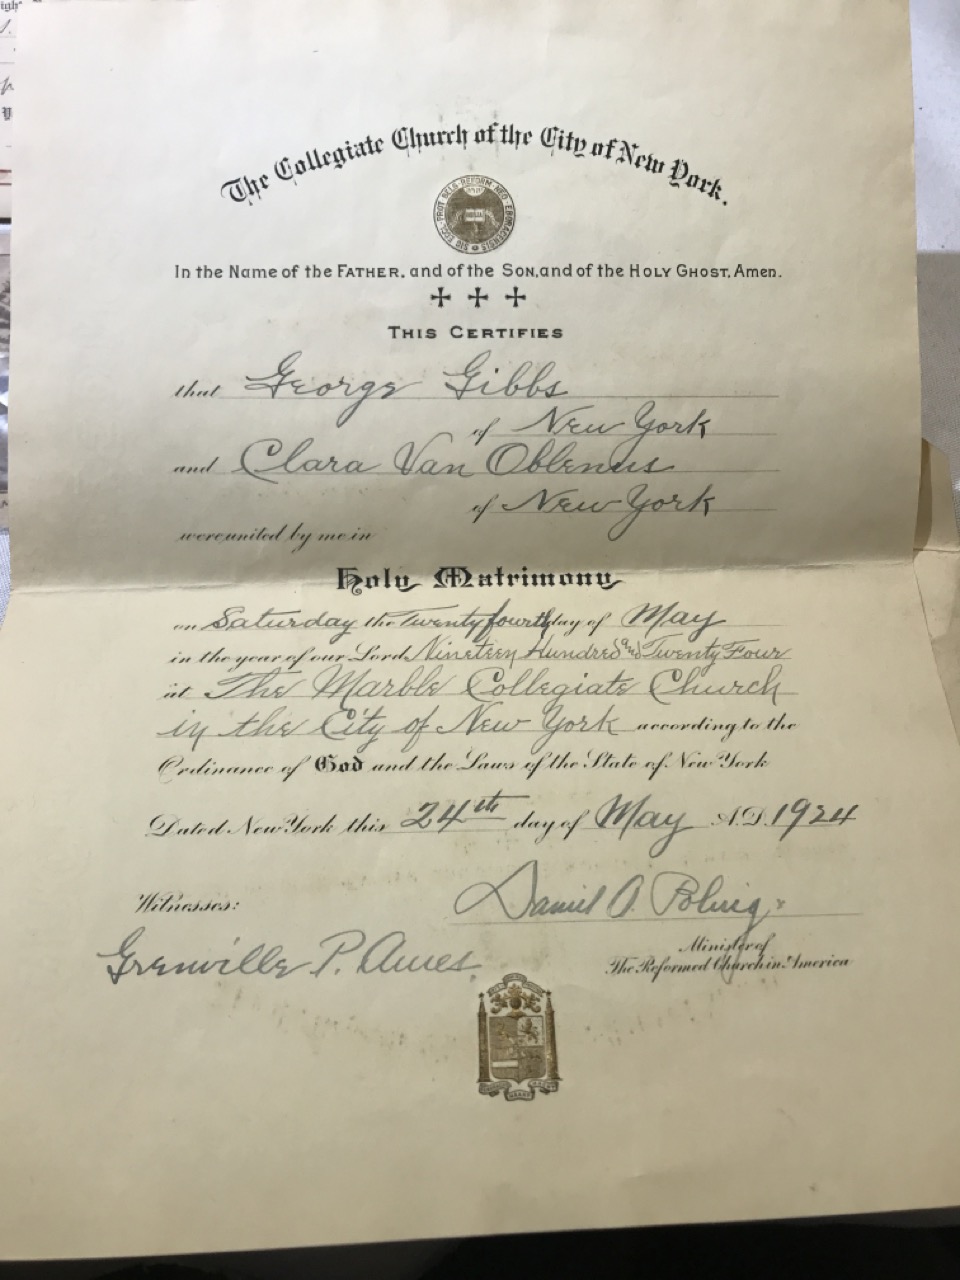 The Collegiate Church of the City of New York.
In the Name of the FATHER, and of the SON, and of the HOLY GHOST, Amen.
THIS CERTIFIES
that George Gibbs
of New York
and Clara Van Oblenus
of New York
were united by me in
Holy Matrimony
on Saturday the Twenty fourth day of May
in the year of our Lord Nineteen Hundred and Twenty Four
at The Marble Collegiate Church
in the City of New York according to the
Ordinance of God and the Laws of the State of New York
Dated New York this 24th day of May A.D. 1924
Witnesses:
Daniel A. Poling
Minister of
The Reformed Church in America
Grenville P. Ames.